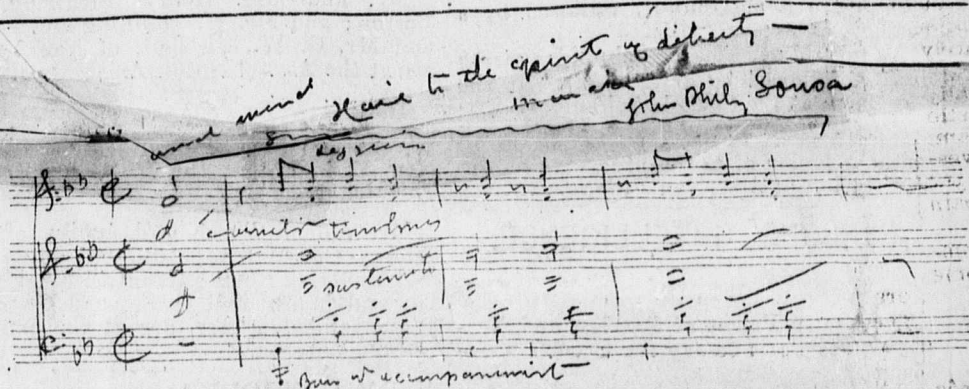 Hail to the spirit of Liberty —
March
John Philip Sousa
and wood
cornets trombones
sustained
Bass & accompaniment